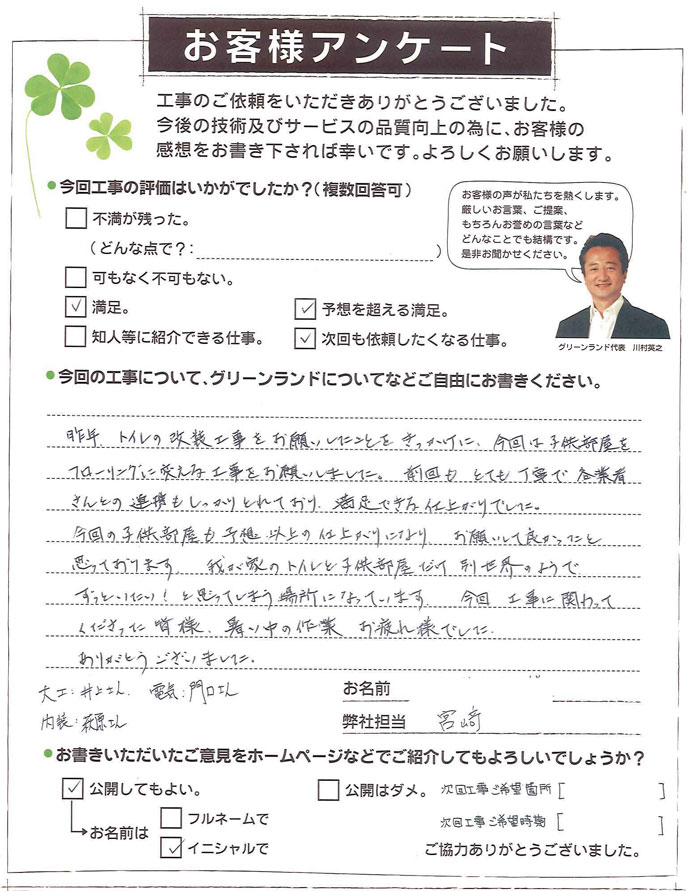 お客様アンケート
工事のご依頼をいただきありがとうございました。
今後の技術及びサービスの品質向上の為に、お客様の
感想をお書き下されば幸いです。よろしくお願いします。
●今回工事の評価はいかがでしたか?(複数回答可)
□不満が残った。
(どんな点で?: )
□可もなく不可もない。
☑満足。 ☑予想を超える満足。
□知人等に紹介できる仕事。 ☑次回も依頼したくなる仕事。
お客様の声が私たちを熱くします。
厳しいお言葉、ご提案、
もちろんお誉めの言葉など
どんなことでも結構です。
是非お聞かせください。
グリーンランド代表 川村英之
●今回の工事について、グリーンランドについてなどご自由にお書きください。
昨年、トイレの改装工事をお願いしたことをきっかけに、今回は子供部屋を
フローリングに変える工事をお願いしました。前回も とても丁寧で 各業者
さんとの連携もしっかりとれており、満足できる仕上がりでした。
今回の子供部屋も予想以上の仕上がりになり お願いして良かったと
思っております。 我が家のトイレと子供部屋だけ別世界のようで
ずっといたい!と思ってしまう場所になっています。 今回 工事に関わって
くださった皆様、暑い中の作業 お疲れ様でした。
ありがとうございました。
大工:井上さん、 電気:門口さん
内装:萩原さん
お名前
弊社担当 宮﨑
●お書きいただいたご意見をホームページなどでご紹介してもよろしいでしょうか?
☑公開してもよい。 □公開はダメ。 次回工事ご希望箇所[ ]
→お名前は □フルネームで 次回工事ご希望時期[ ]
☑イニシャルで ご協力ありがとうございました。